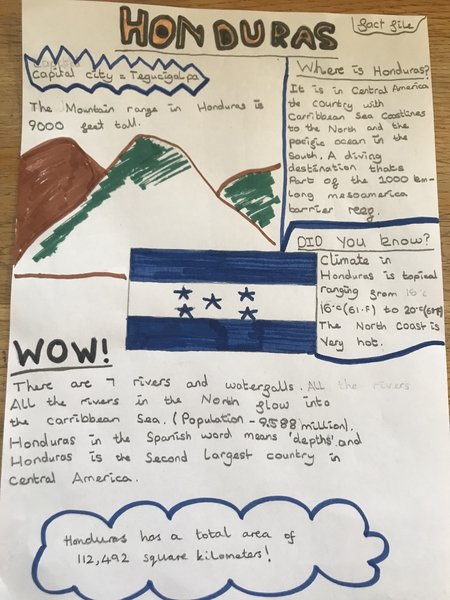 HONDURAS
fact file
Capital city = Tegucigalpa
The Mountain range in Honduras is
9000 feet tall.
Where is Honduras?
It is in Central America
the country with
Carribbean Sea Coastlines
to the North and the
pacific ocean in the
South. A diving
destination thats
Part of the 1000 km-
long mesoamerica
barrier reeg.
DID You know?
Climate in
Honduras is topical
ranging from 16°c
16°c(61°F) to 20°c(68°F)
The North Coast is
Very hot.
WOW!
There are 7 rivers and waterfalls. All the rivers
All the rivers in the North flow into
the carribbean Sea. (Population - 9.588 million).
Honduras in the Spanish word means 'depths' and
Honduras is the Second largest country in
Central America.
Honduras has a total area of
112,492 square kilometers!